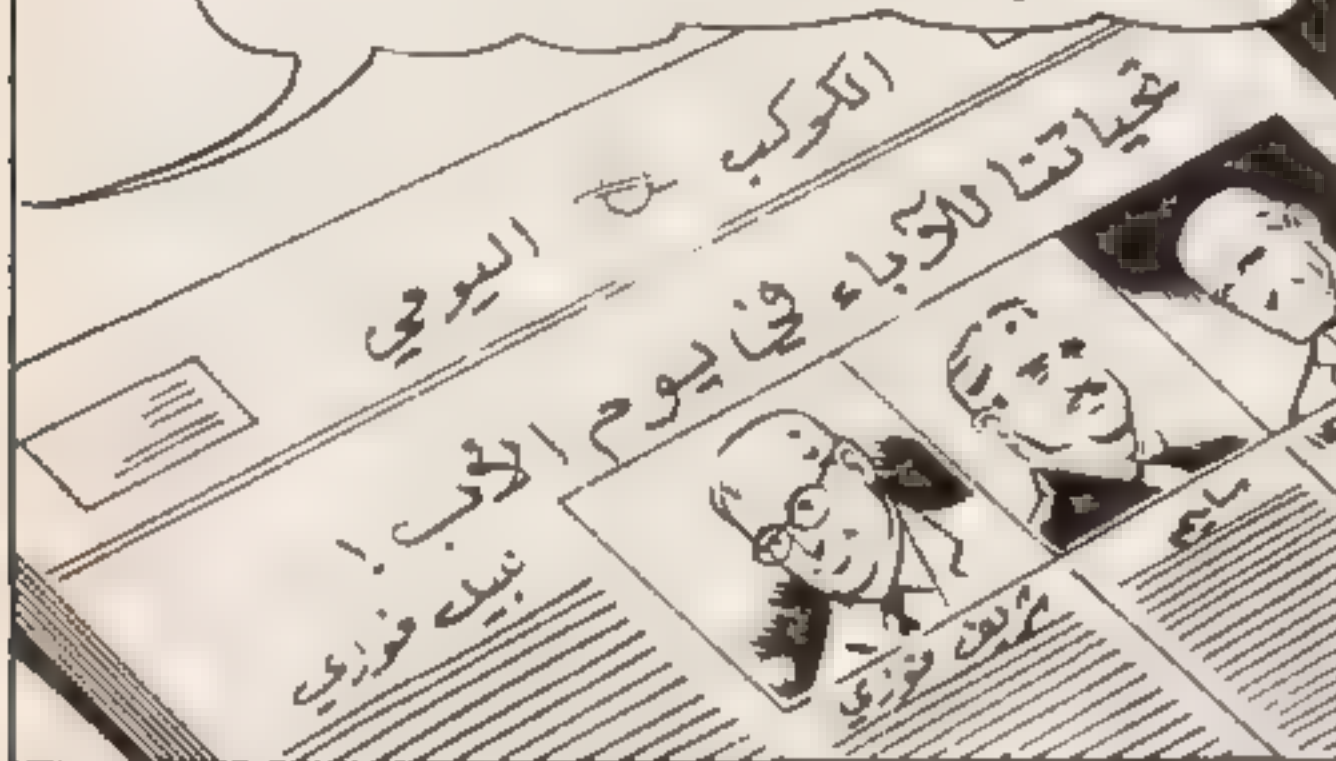 الكوكب اليومي
تحياتنا للآباء في يوم الأب !
نبيل فوزي
شريف فوزي
سامح